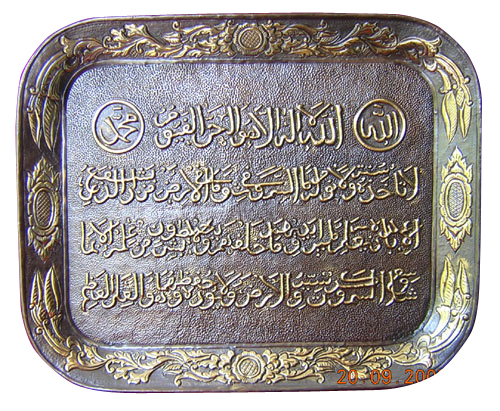 الله الله لا اله الا هو الحي القيوم محمد
لا تأخذه سنة ولا نوم له ما في السموات وما في الارض من ذا الذي
الا باذنه يعلم ما بين ايديهم وما خلفهم ولا يحيطون بشيء من علمه الا بما
شاء وسع كرسيه السموات والارض ولا يؤده حفظهما وهو العلي العظيم
20.09.200